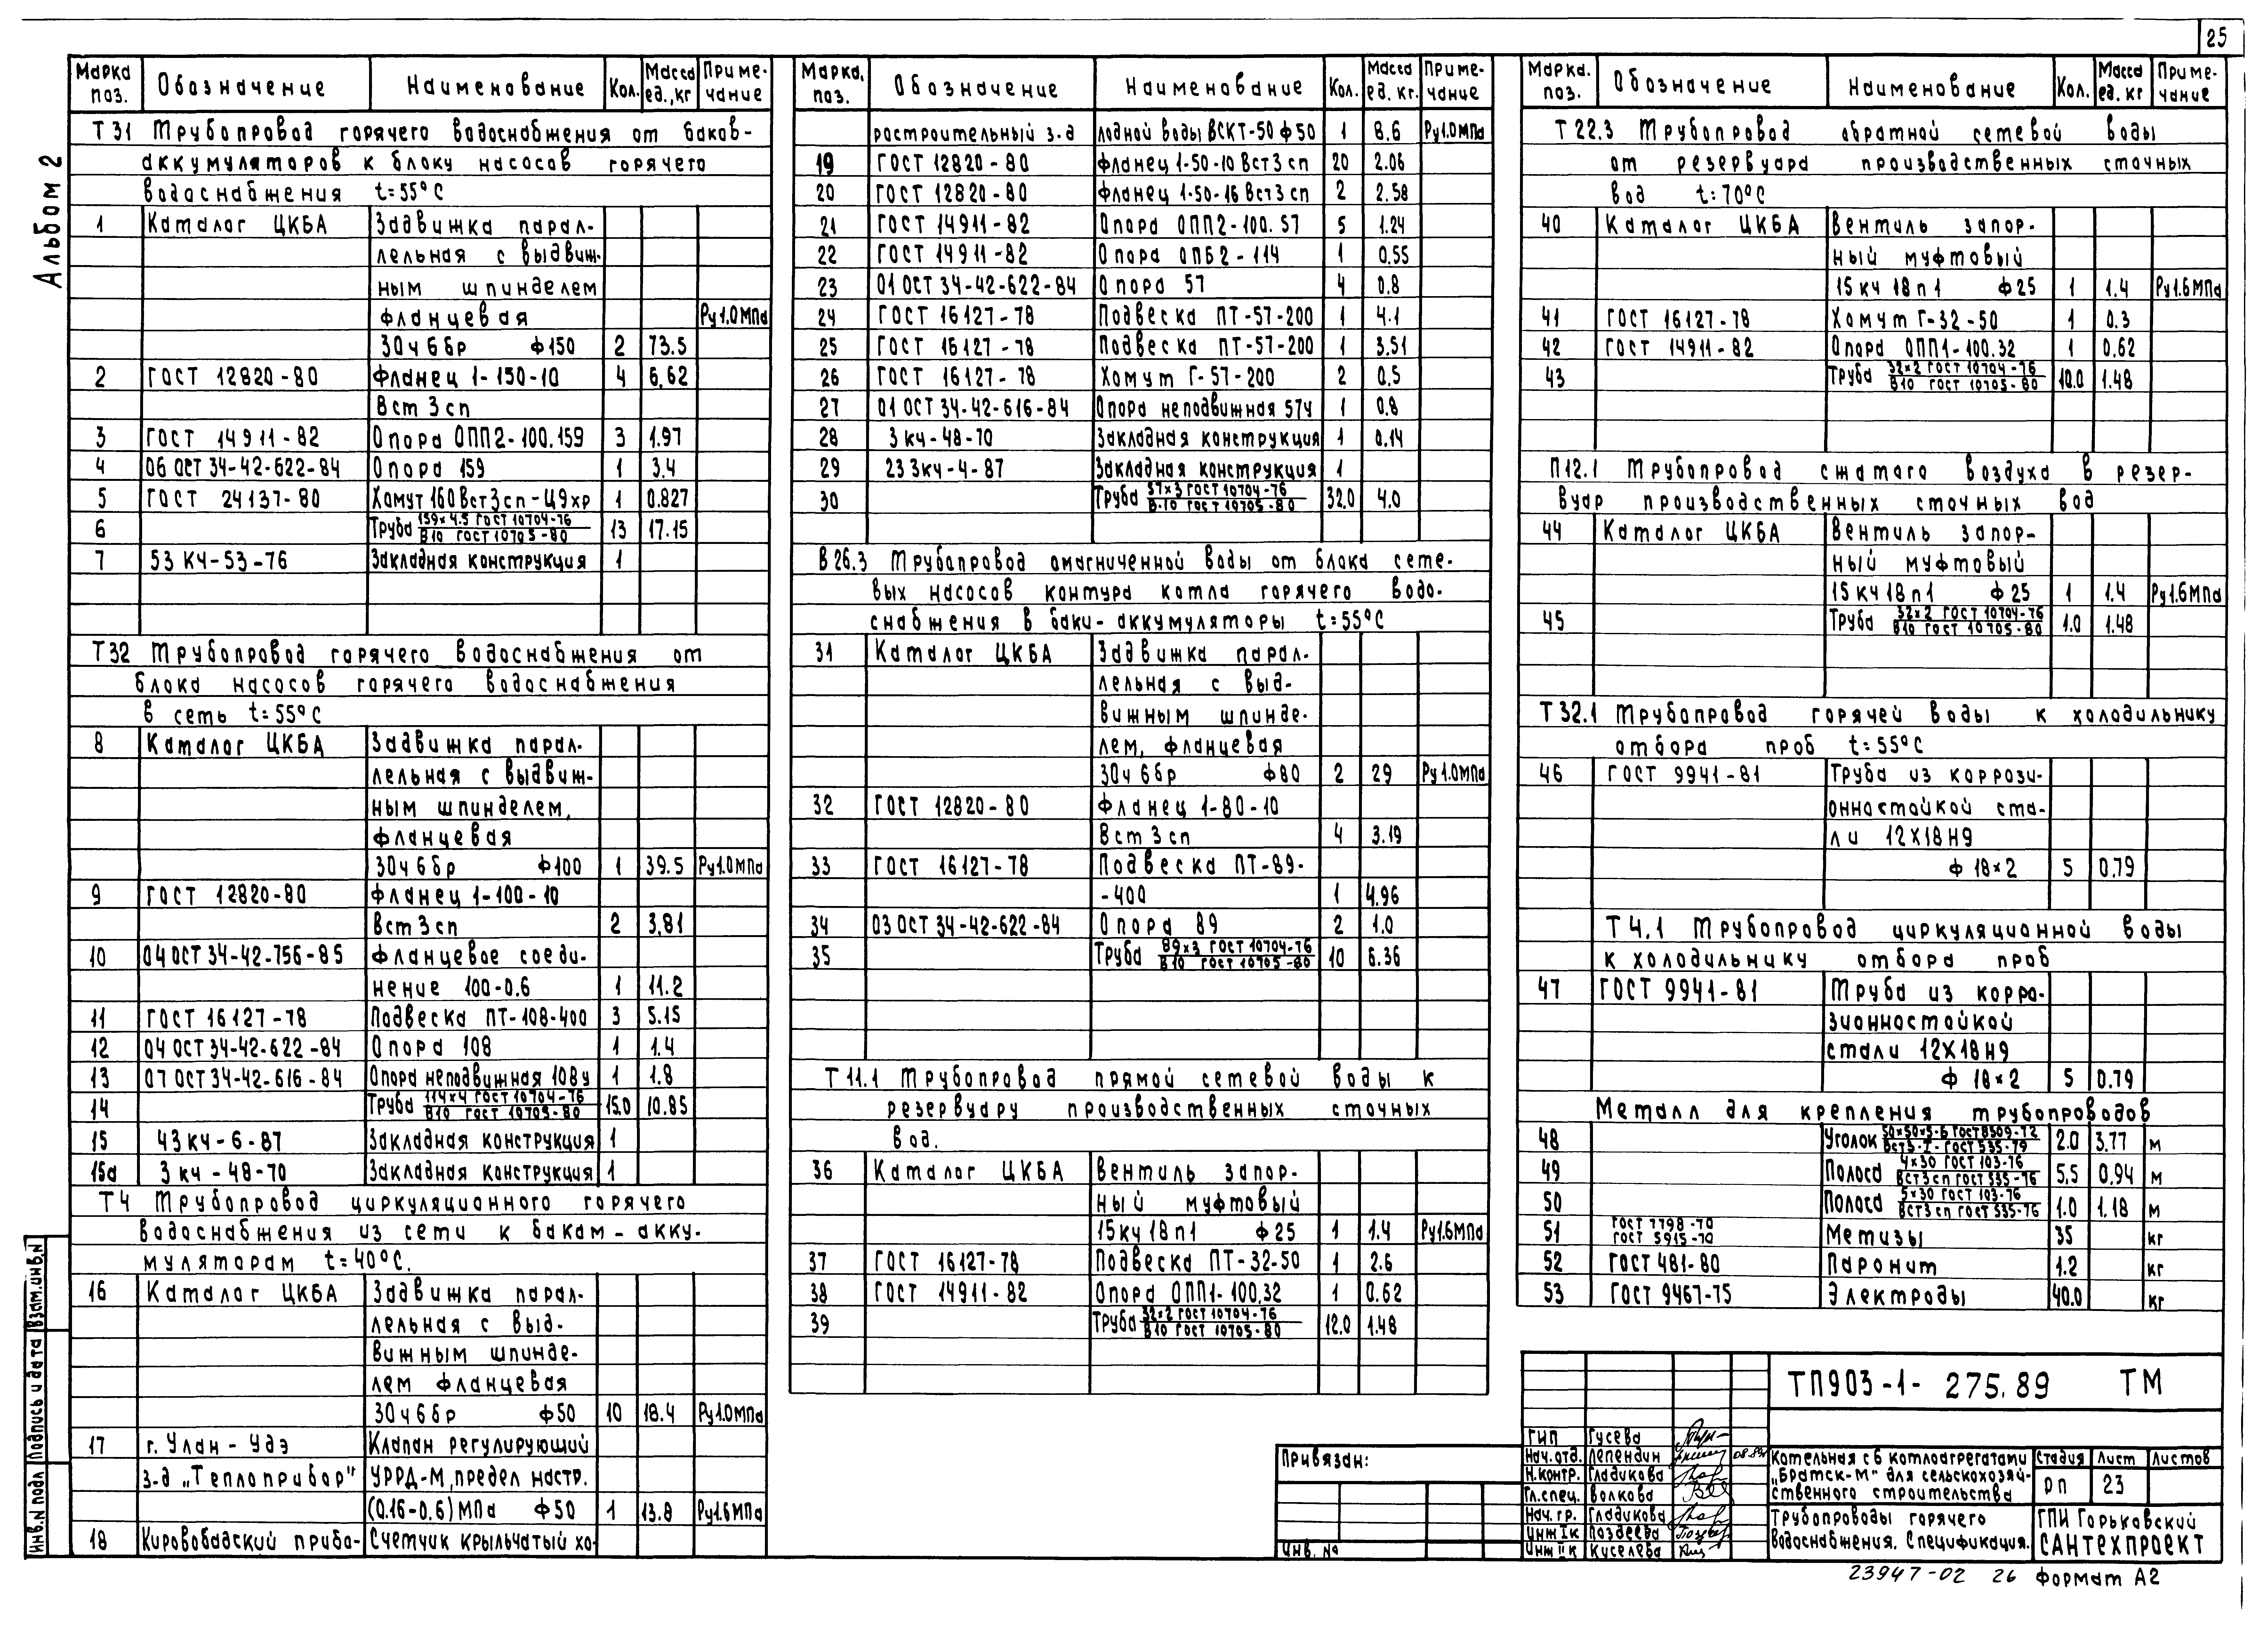 25
Альбом 2
Марка поз. Обозначение Наименование Кол. Масса ед., кг Примечание
Т31 Трубопровод горячего водоснабжения от баков-
аккумуляторов к блоку насосов горячего
водоснабжения t=55°С
1 Каталог ЦКБА Задвижка парал-
лельная с выдвиж-
ным шпинделем
фланцевая Ру1.0МПа
30ч6бр ф150 2 73.5
2 ГОСТ 12820-80 Фланец 1-150-10 4 6,62
Вст3сп
3 ГОСТ 14911-82 Опора ОПП2-100.159 3 1.97
4 06 ОСТ 34-42-622-84 Опора 159 1 3.4
5 ГОСТ 24137-80 Хомут 160Вст3сп-Ц9хр 1 0.827
6 Труба 159×4.5 ГОСТ 10704-76 / В10 ГОСТ 10705-80 13 17.15
7 53 КЧ-53-76 Закладная конструкция 1
Т32 Трубопровод горячего водоснабжения от
блока насосов горячего водоснабжения
в сеть t=55°С
8 Каталог ЦКБА Задвижка парал-
лельная с выдвиж-
ным шпинделем,
фланцевая
30ч6бр ф100 1 39.5 Ру1.0МПа
9 ГОСТ 12820-80 Фланец 1-100-10
Вст3сп 2 3,81
10 04 ОСТ 34-42-756-85 Фланцевое соеди-
нение 100-0.6 1 11.2
11 ГОСТ 16127-78 Подвеска ПТ-108-400 3 5.15
12 04 ОСТ 34-42-622-84 Опора 108 1 1.4
13 07 ОСТ 34-42-616-84 Опора неподвижная 108у 1 1.8
14 Труба 114×4 ГОСТ 10704-76 / В10 ГОСТ 10705-80 15.0 10.85
15 43 кч-6-87 Закладная конструкция 1
15а 3 кч-48-70 Закладная конструкция 1
Т4 Трубопровод циркуляционного горячего
водоснабжения из сети к бакам-акку-
муляторам t=40°С.
16 Каталог ЦКБА Задвижка парал-
лельная с выд-
вижным шпинде-
лем фланцевая
30ч6бр ф50 10 18.4 Ру1.0МПа
17 г. Улан-Удэ Клапан регулирующий
з-д „Теплоприбор" УРРД-М, предел настр.
(0.16-0.6)МПа ф50 1 13.8 Ру1.6МПа
18 Кировобадский прибо- Счетчик крыльчатый хо-
Марка, поз. Обозначение Наименование Кол. Масса ед. кг. Примечание
ростроительный з-д лодной воды ВСКТ-50 ф50 1 8.6 Ру1.0МПа
19 ГОСТ 12820-80 Фланец 1-50-10 Вст3сп 20 2.06
20 ГОСТ 12820-80 Фланец 1-50-16 Вст3сп 2 2.58
21 ГОСТ 14911-82 Опора ОПП2-100.57 5 1.24
22 ГОСТ 14911-82 Опора ОПБ2-114 1 0.55
23 01 ОСТ 34-42-622-84 Опора 57 4 0.8
24 ГОСТ 16127-78 Подвеска ПТ-57-200 1 4.1
25 ГОСТ 16127-78 Подвеска ПТ-57-200 1 3.51
26 ГОСТ 16127-78 Хомут Г-57-200 2 0.5
27 01 ОСТ 34-42-616-84 Опора неподвижная 57у 1 0.8
28 3 кч-48-70 Закладная конструкция 1 0.14
29 23 3кч-4-87 Закладная конструкция 1
30 Труба 57×3 ГОСТ 10704-76 / В-10 ГОСТ 10705-80 32.0 4.0
В26.3 Трубопровод омагниченной воды от блока сете-
вых насосов контура котла горячего водо-
снабжения в баки-аккумуляторы t=55°С
31 Каталог ЦКБА Задвижка парал-
лельная с выд-
вижным шпинде-
лем, фланцевая
30ч6бр ф80 2 29 Ру1.0МПа
32 ГОСТ 12820-80 Фланец 1-80-10
Вст3сп 4 3.19
33 ГОСТ 16127-78 Подвеска ПТ-89-
-400 1 4.96
34 03 ОСТ 34-42-622-84 Опора 89 2 1.0
35 Труба 89×3 ГОСТ 10704-76 / В10 ГОСТ 10705-80 10 6.36
Т11.1 Трубопровод прямой сетевой воды к
резервуару производственных сточных
вод.
36 Каталог ЦКБА Вентиль запор-
ный муфтовый
15кч18п1 ф25 1 1.4 Ру1.6МПа
37 ГОСТ 16127-78 Подвеска ПТ-32-50 1 2.6
38 ГОСТ 14911-82 Опора ОПП1-100.32 1 0.62
39 Труба 32×2 ГОСТ 10704-76 / В10 ГОСТ 10705-80 12.0 1.48
Марка. поз. Обозначение Наименование Кол. Масса ед. кг Примечание
Т22.3 Трубопровод обратной сетевой воды
от резервуара производственных сточных
вод t=70°С
40 Каталог ЦКБА Вентиль запор-
ный муфтовый
15кч18п1 ф25 1 1.4 Ру1.6МПа
41 ГОСТ 16127-78 Хомут Г-32-50 1 0.3
42 ГОСТ 14911-82 Опора ОПП1-100.32 1 0.62
43 Труба 32×2 ГОСТ 10704-76 / В10 ГОСТ 10705-80 10.0 1.48
П12.1 Трубопровод сжатого воздуха в резер-
вуар производственных сточных вод
44 Каталог ЦКБА Вентиль запор-
ный муфтовый
15кч18п1 ф25 1 1.4 Ру1.6МПа
45 Труба 32×2 ГОСТ 10704-76 / В10 ГОСТ 10705-80 1.0 1.48
Т32.1 Трубопровод горячей воды к холодильнику
отбора проб t=55°С
46 ГОСТ 9941-81 Труба из коррози-
онностойкой ста-
ли 12Х18Н9
ф 18×2 5 0.79
Т4.1 Трубопровод циркуляционной воды
к холодильнику отбора проб
47 ГОСТ 9941-81 Труба из корро-
зионностойкой
стали 12Х18Н9
ф 18×2 5 0.79
Металл для крепления трубопроводов
48 Уголок 50×50×5-Б ГОСТ 8509-72 / Вст3-I-ГОСТ 535-79 2.0 3.77 м
49 Полоса 4×30 ГОСТ 103-76 / Вст3сп ГОСТ 535-76 5.5 0.94 м
50 Полоса 5×30 ГОСТ 103-76 / Вст3сп ГОСТ 535-76 1.0 1.18 м
51 ГОСТ 7798-70 ГОСТ 5915-70 Метизы 35 кг
52 ГОСТ 481-80 Паронит 1.2 кг
53 ГОСТ 9467-75 Электроды 40.0 кг
Привязан:
Инв. №
ТП903-1-275.89 ТМ
ГИП Гусева
Нач. отд. Лепендин 08.89
Н.контр. Гладикова
Гл.спец. Волкова
Нач. гр. Гладикова
Инж Iк Поздеева
Инж IIк Киселева
Котельная с 6 котлоагрегатами
„Братск-М" для сельскохозяй-
ственного строительства
Стадия Лист Листов
РП 23
Трубопроводы горячего
водоснабжения. Спецификация.
ГПИ Горьковский
САНТЕХПРОЕКТ
23947-02 26 Формат А2
Инв. N подл Подпись и дата Взам. инв. N